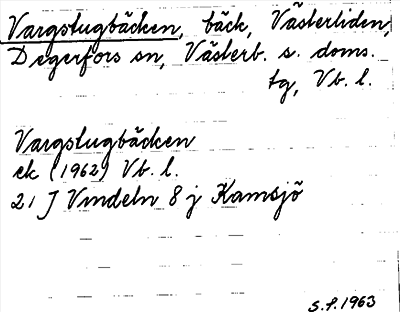 Vargstugbäcken, bäck, Västerliden,
Degerfors sn, Västerb. s. doms.
tg, Vb. l.
Vargstugbäcken
ek (1962) Vb. l.
21 J Vindeln 8 j Kamsjö
S.P. 1963